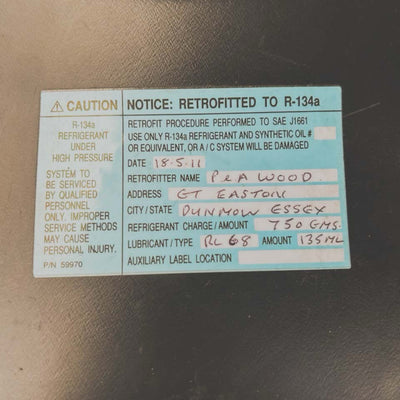 ⚠ CAUTION
R-134a
REFRIGERANT
UNDER
HIGH PRESSURE
SYSTEM TO
BE SERVICED
BY QUALIFIED
PERSONNEL
ONLY. IMPROPER
SERVICE METHODS
MAY CAUSE
PERSONAL INJURY.
P/N 59970
NOTICE: RETROFITTED TO R-134a
RETROFIT PROCEDURE PERFORMED TO SAE J1661
USE ONLY R-134a REFRIGERANT AND SYNTHETIC OIL #
OR EQUIVALENT, OR A / C SYSTEM WILL BE DAMAGED
DATE 18-5-11
RETROFITTER NAME P&A WOOD
ADDRESS GT EASTON
CITY / STATE DUNMOW ESSEX
REFRIGERANT CHARGE / AMOUNT 750 GMS.
LUBRICANT / TYPE RL 68 AMOUNT 135ML
AUXILIARY LABEL LOCATION